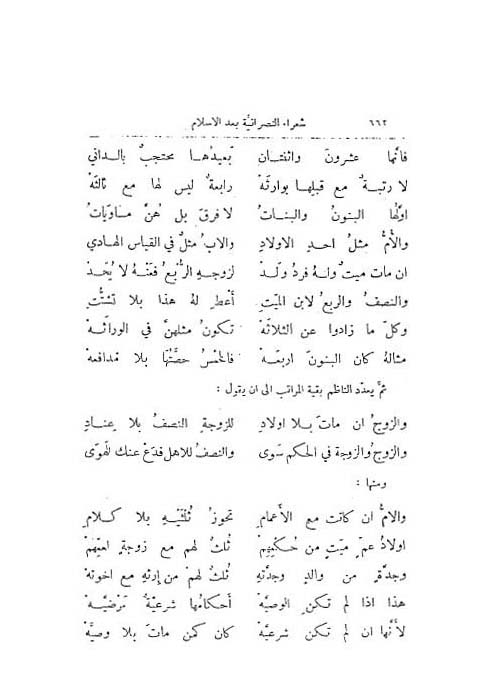 ٦٦٢ شعراء النصرانيَّة بعد الاسلام
فانَّها عشرونَ واثنتان بعيدُها محتجبٌ بالداني
لا رتبةٌ مع قبلِها بوارثَهْ رابعةٌ ليس لها مع ثالثَهْ
اوَّلُها البنونُ والبناتُ لا فرقَ بل هُنَّ مساوياتُ
والأُمُّ مثلُ احدِ الاولادِ والابُ مثلٌ في القياس الهادي
ان مات ميتٌ ولهُ فردُ ولَدْ لزوجهِ الرُّبْعُ فعَنْهُ لا يُحَدْ
والنصفُ والربعُ لابن الميّتِ أَعطِ لهُ هذا بلا تشتُّتِ
وكلّ ما زادوا عن الثلاثَهْ تكونُ مثلهنَّ في الوراثَهْ
مثالهُ كان البنون اربعَهْ فالخمْسُ حصَّتُها بلا مدافعهْ
ثمَّ يعدّد الناظم بقية المراتب الى ان يقول :
والزوجُ ان ماتَ بلا اولادِ للزوجةِ النصفُ بلا عِنادِ
والزوجُ والزوجة في الحكم سَوى والنصفُ للاهل فدَعْ عنك الهوى
ومنها :
والامُّ ان كانت مع الأَعمامِ تحوزُ ثُلثَيْهِ بلا كلامِ
اولادُ عمّ ميّتٍ من حُكمِهِمْ ثُلثٌ لهم مع زوجةٍ لعمِّهمْ
وجدَّةٍ من والدٍ وجدَّتِهِ ثُلثٌ لهمْ من إِرثهِ مع اخوتهْ
هذا اذا لم تكنِ الوصيَّهْ أَحكامُها شرعيَّةٌ مَرْضيَّهْ
لأَنَّها ان لم تكن شرعيَّهْ كان كمن ماتَ بلا وصيَّهْ